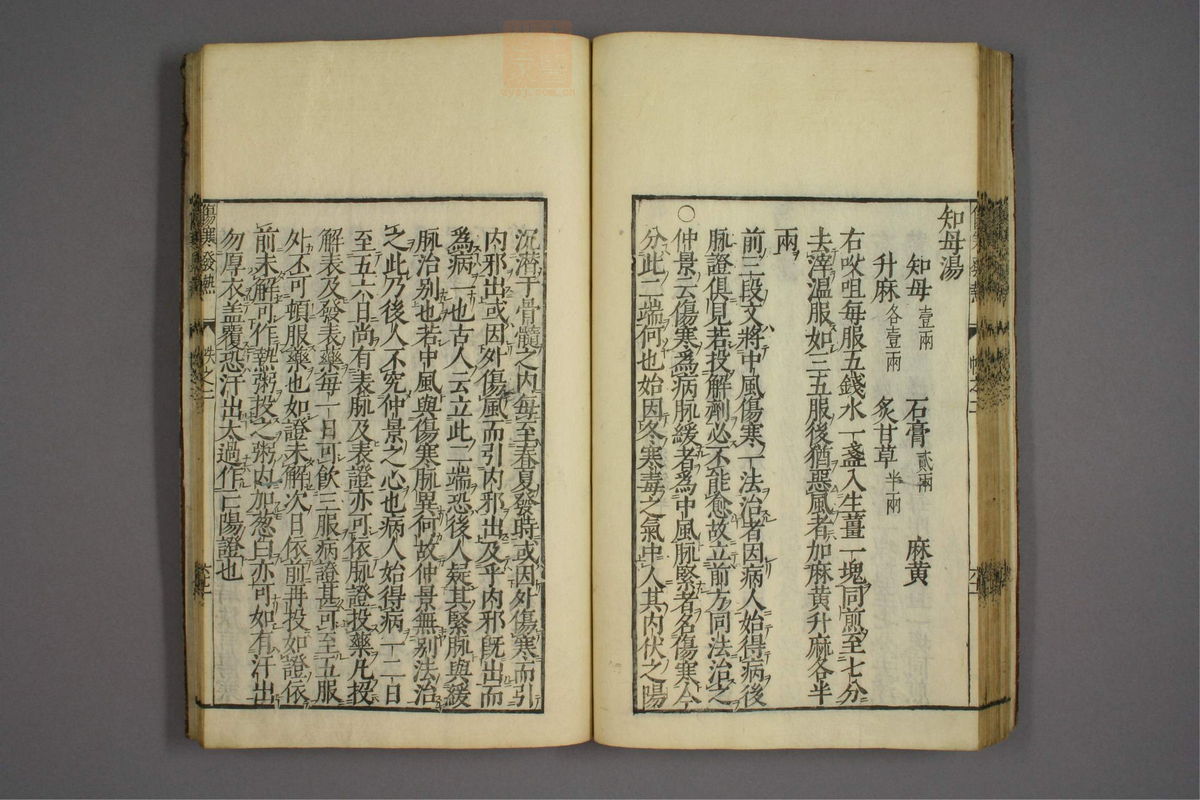 知母湯
知母壹兩 石膏貳兩 麻黄
升麻各壹兩 炙甘草半兩
右㕮咀每服五錢水一盞入生薑一塊同煎至七分
去滓温服如三五服後猶惡風者加麻黄升麻各半
兩
前三段文將中風傷寒一法治者因病人始得病後
脉證俱見若投解劑必不能愈故立前方同法治之
○仲景云傷寒為病脉緩者為中風脉緊者名傷寒今
分此二端何也始因冬寒毒之氣中人其内伏之陽
沉潜于骨髓之内每至春夏發時或因外傷寒而引
内邪出或因外傷風而引内邪出及乎内邪既出而
為病一也古人云立此二端恐後人疑其緊脉與緩
脉治别也若中風與傷寒脉異何故仲景無别法治
之此乃後人不究仲景之心也病人始得病一二日
至五六日尚有表脉及表證亦可依脉證投藥凢投
解表及發表藥每一日可飲三服病證甚可至五服
外不可頓服藥也如證未解次日依前再投如證依
前未解可作熱粥投之粥内加葱白亦可如有汗出
勿厚衣盖覆恐汗出太過作亡陽證也
傷寒發熱
之二